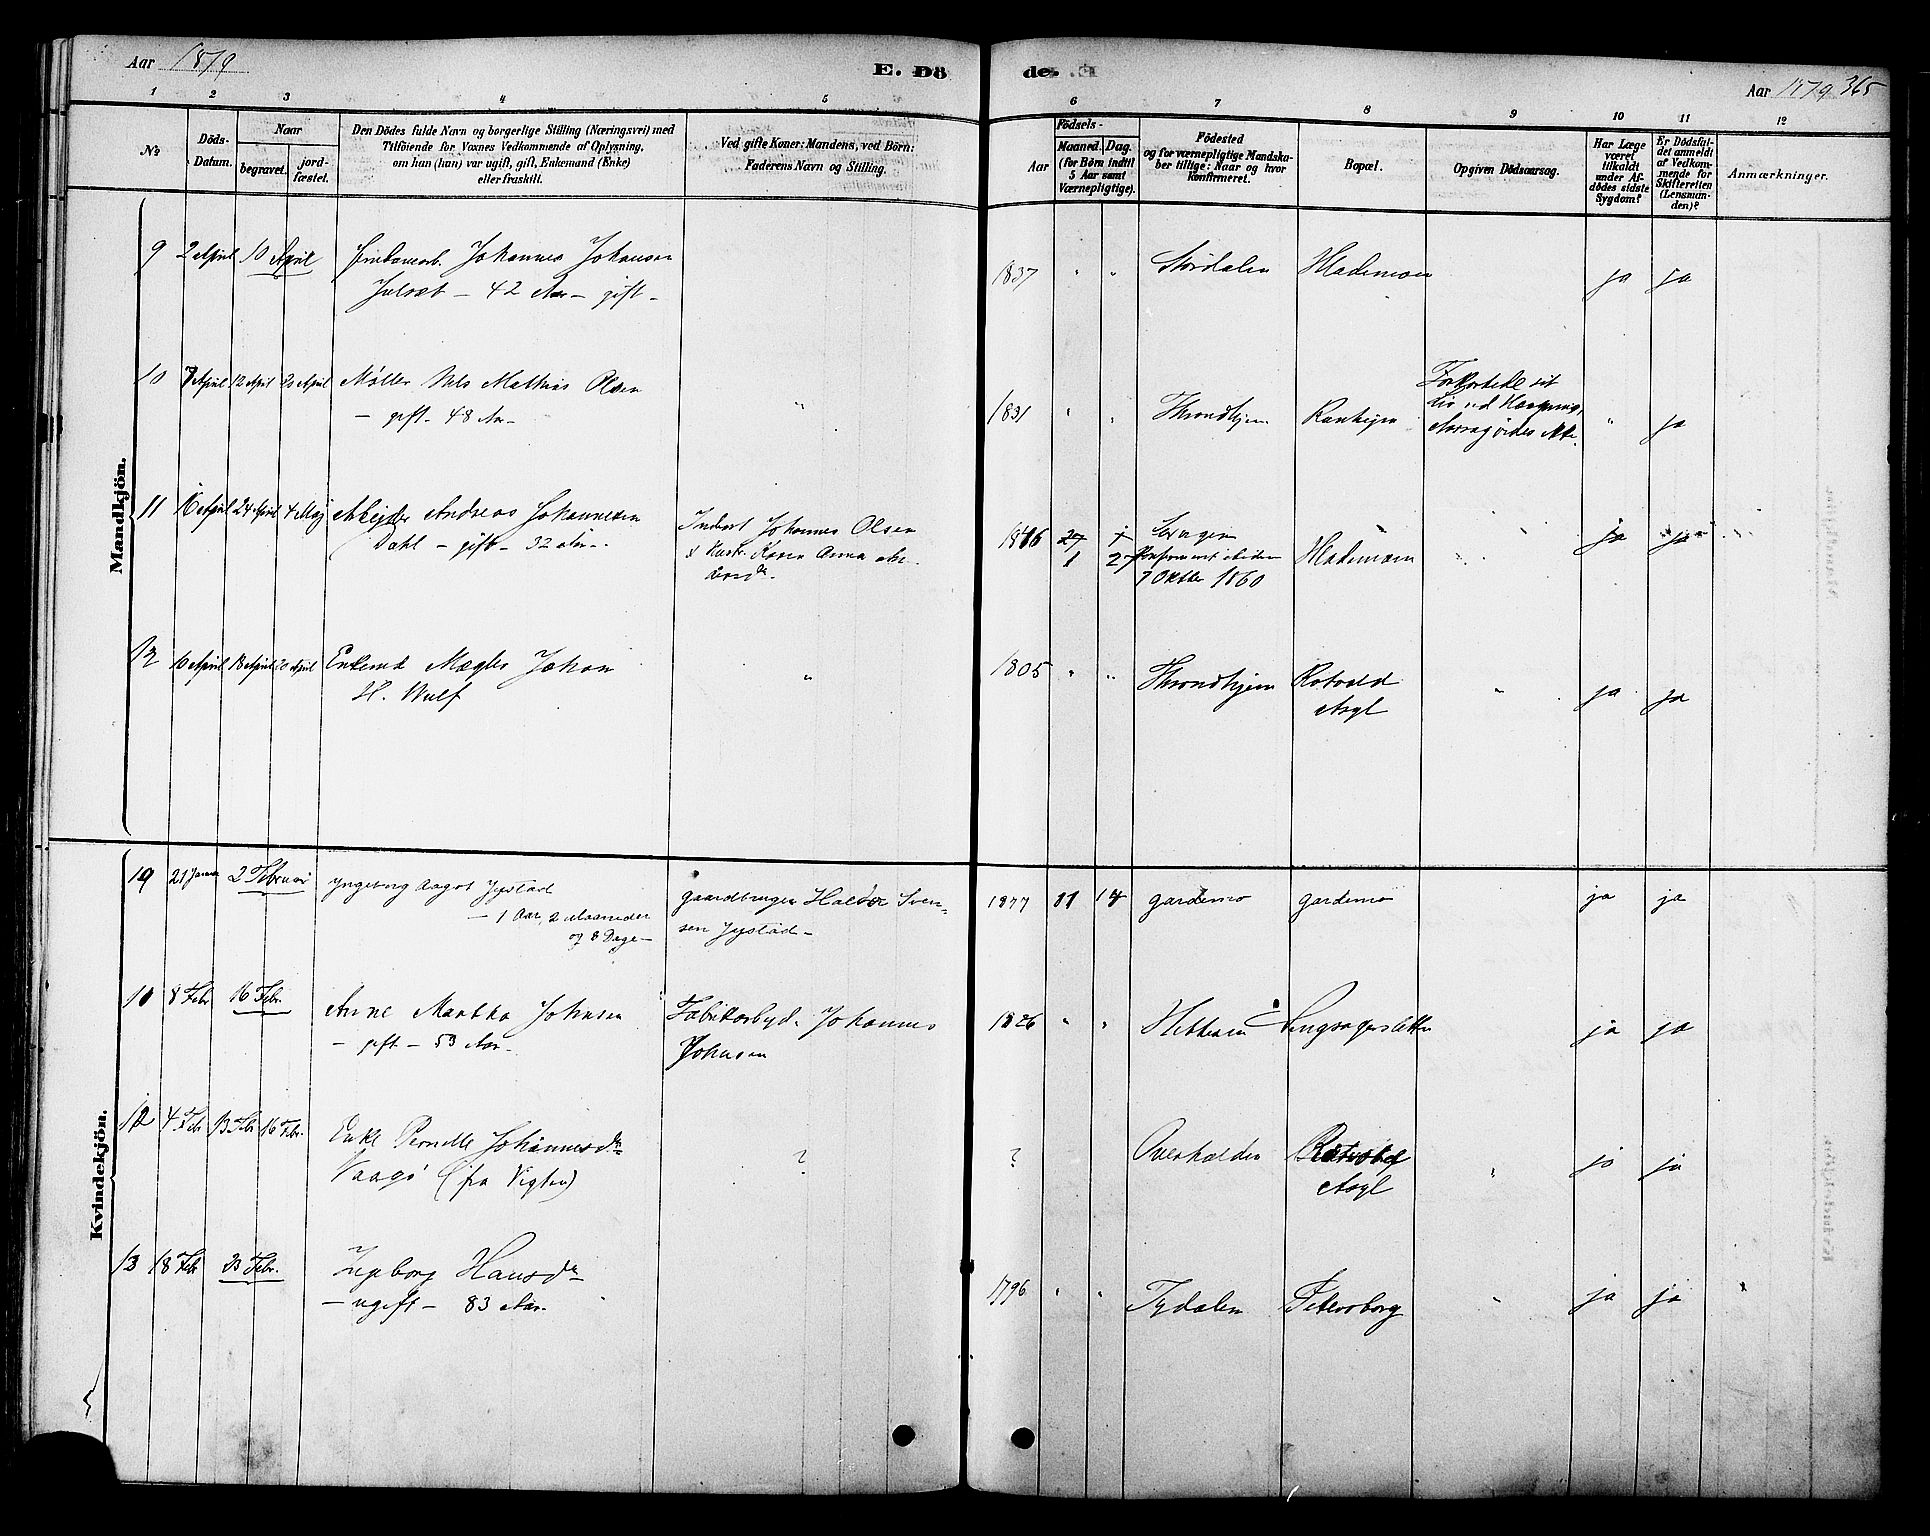 Aar 1879
E. Dö
de.
Aar 1879 365
1 2 3 4 5 6 7 8 9 10 11 12
No
Döds-
Datum.
Naar
begravet.
jord-
fæstet.
Den Dödes fulde Navn og borgerlige Stilling (Næringsvei) med
Tilföiende for Voxnes Vedkommende af Oplysning,
om han (hun) var ugift, gift, Enkemand (Enke)
eller fraskilt.
Ved gifte Koner: Mandens, ved Börn:
Faderens Navn og Stilling.
Födsels-
Aar
Maaned.
Dag.
(for Börn indtil
5 Aar samt
Værnepligtige).
Födested
og for værnepligtige Mandska-
ber tillige: Naar og hvor
konfirmeret.
Bopæl.
Opgiven Dödsaarsag.
Har Læge
været
tilkaldt
under Af-
dödes sidste
Sygdom?
Er Dödsfal-
det anmeldt
af Vedkom-
mende for
Skifteretten
(Lensman-
den)?
Anmærkninger.
Mandkjön.
9 2 April 10 April Johannes Johansen
42 Aar - gift -
1837 " " Stördalen Hlademoen ja ja
10 7 April 12 April 20 April Møller Nils Mathias Olsen
- gift - 48 Aar -
" 1831 " " Throndhjem Ranheim
Forkortede sit
Liv ved Hængning,
" ja
11 16 April 24 April 4 Maj Arbejder Andreas Johannesen
Dahl - gift - 32 Aar -
Inderst Johannes Olsen
& Hustr. Karen Anna
1846
1 27
7 Oktbr 1860
Hlademoen
ja ja
12 10 April 18 April 20 April Enkemd Mægler Johan
H. Wulf
" 1805 " " Throndhjem Rotvold
Asyl
" ja ja
Kvindekjön.
19 21 Januar 2 Februar Yngeborg Aagot Jystad
- 1 Aar, 2 Maaneder
og 8 Dage -
gaardbruger Haldor Sven-
sen Jystad -
1877 11 14 gardemo gardemo ja ja
11 8 Febr 16 Febr.
Anne Martha Johnsen
- gift - 53 Aar -
Fabrikarbejd. Johannes
Johnsen
1826 " " Hitteren Langsagersletten ja ja
12 4 Febr 13 Febr 16 Febr.
Enke Pernille Johannesdr
Vaagø (fra Vigten)
? ? Overhalden Rotvold
Asyl
" ja ja
13 18 Febr 23 Febr.
Ingeborg Hansdr
- ugift - 83 Aar.
1796 " " Tydalen Petersborg " ja ja